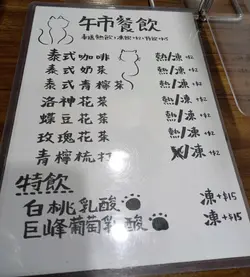 午市餐飲
奉送熱飲，凍飲+2，特飲+15
泰式咖啡 熱/凍+2
泰式奶茶 熱/凍+2
泰式青檸茶 熱/凍+2
洛神花茶 熱/凍+2
蝶豆花茶 熱/凍+2
玫瑰花茶 熱/凍+2
青檸梳打 凍+2
特飲
白桃乳酸 凍+$15
巨峰葡萄乳酸 凍+$15